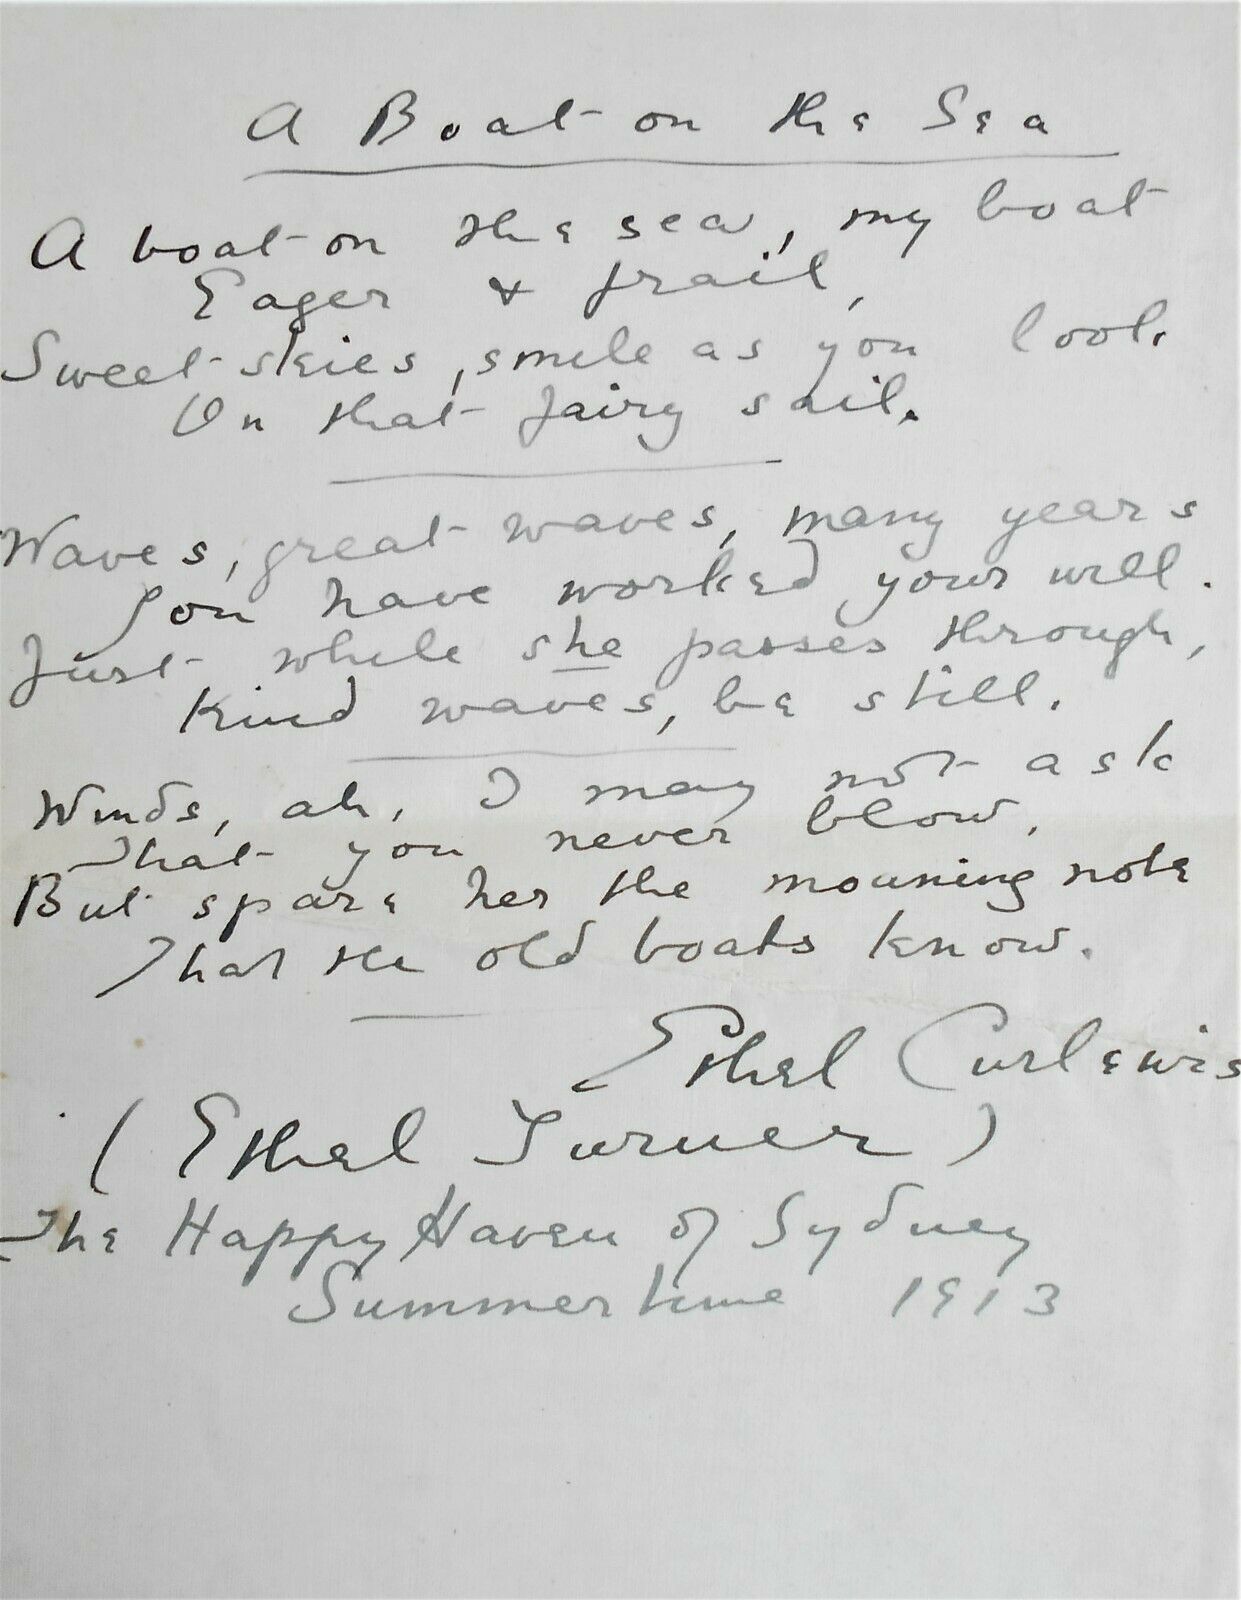 A Boat on the Sea
A boat on the sea, my boat
Eager & frail,
Sweet skies, smile as you look
On that fairy sail.
Waves, great waves, many years
You have worked your will.
Just while she passes through,
Kind waves, be still.
Winds, ah, I may not ask
That you never blow,
But spare her the mourning note
That the old boats know.
Ethel Curlewis
(Ethel Turner)
The Happy Haven of Sydney
Summertime 1913